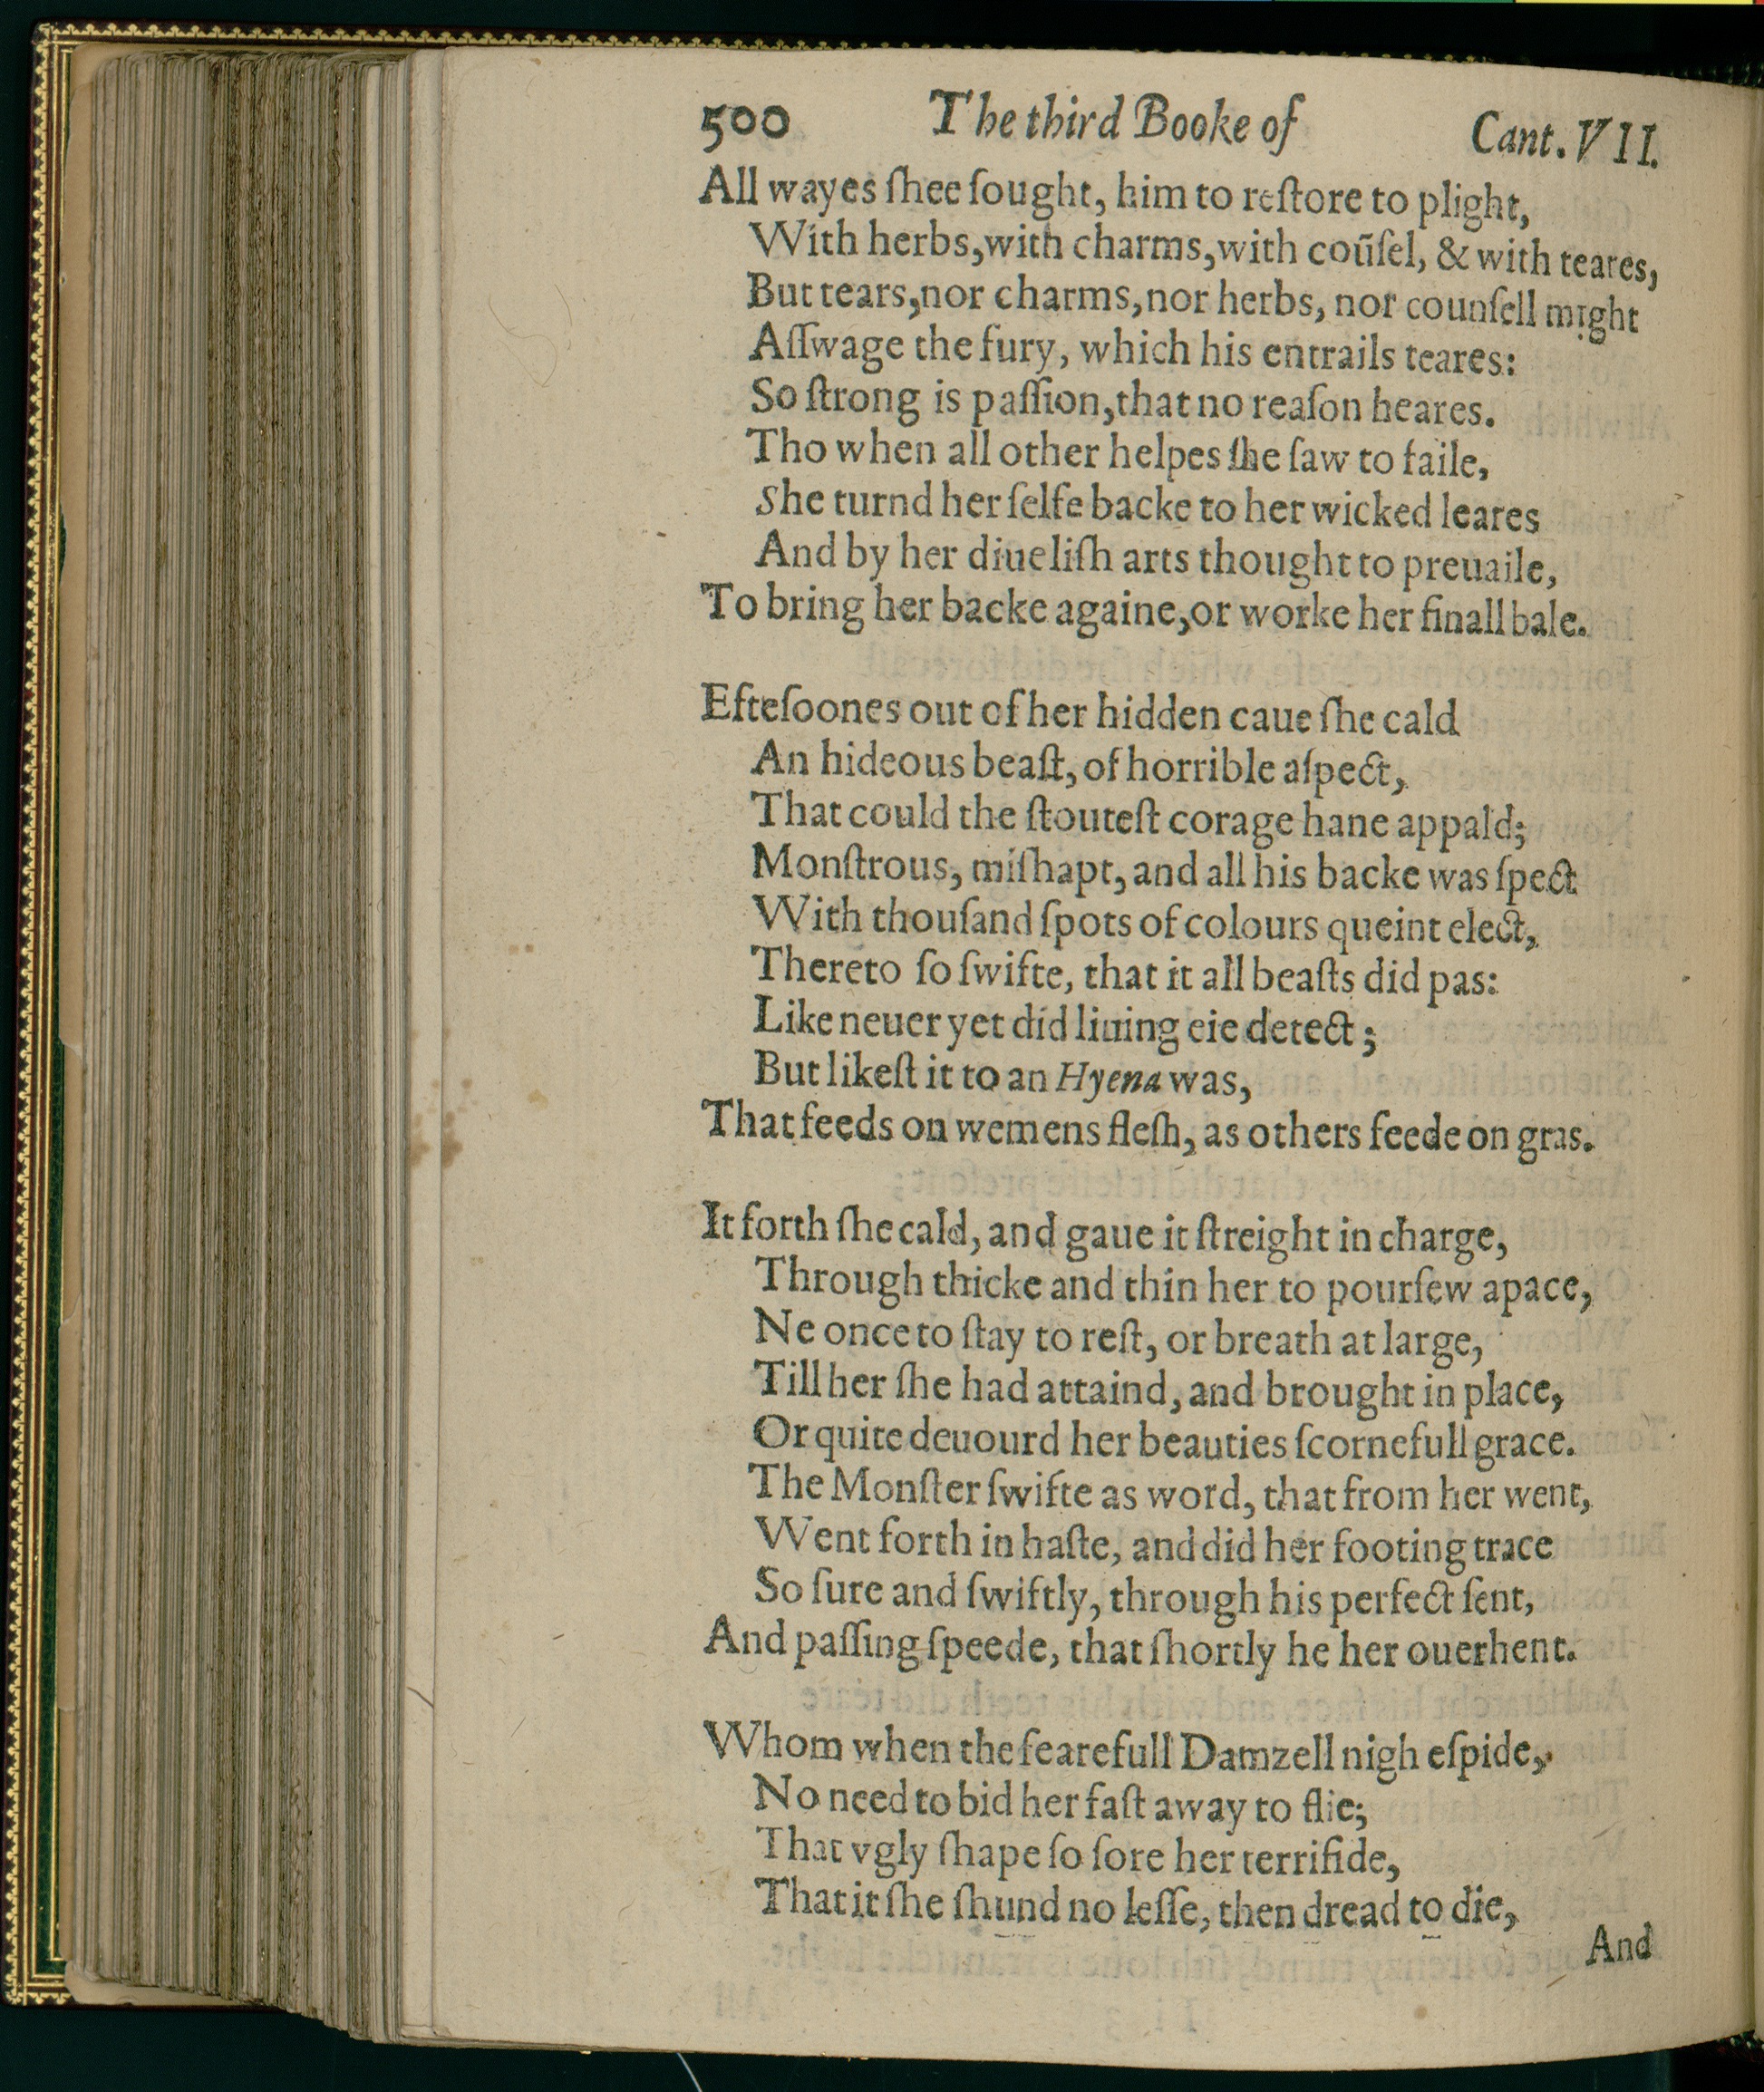 500 The third Booke of Cant. VII.
All wayes ſhee ſought, him to reſtore to plight,
With herbs, with charms, with coũſel, & with teares,
But tears, nor charms, nor herbs, nor counſell might
Aſſwage the fury, which his entrails teares:
So ſtrong is paſſion, that no reaſon heares.
Tho when all other helpes ſhe ſaw to faile,
She turnd her ſelfe backe to her wicked leares
And by her diueliſh arts thought to preuaile,
To bring her backe againe, or worke her finall bale.
Efteſoones out of her hidden caue ſhe cald
An hideous beaſt, of horrible aſpect,
That could the ſtouteſt corage hane appald;
Monſtrous, miſhapt, and all his backe was ſpect
With thouſand ſpots of colours queint elect,
Thereto ſo ſwifte, that it all beaſts did pas:
Like neuer yet did liuing eie detect;
But likeſt it to an Hyena was,
That feeds on wemens fleſh, as others feede on gras.
It forth ſhe cald, and gaue it ſtreight in charge,
Through thicke and thin her to pourſew apace,
Ne once to ſtay to reſt, or breath at large,
Till her ſhe had attaind, and brought in place,
Or quite deuourd her beauties ſcornefull grace.
The Monſter ſwifte as word, that from her went,
Went forth in haſte, and did her footing trace
So ſure and ſwiftly, through his perfect ſent,
And paſſing ſpeede, that ſhortly he her ouerhent.
Whom when the fearefull Damzell nigh eſpide,
No need to bid her faſt away to flie;
That vgly ſhape ſo ſore her terrifide,
That it ſhe ſhund no leſſe, then dread to die,
And